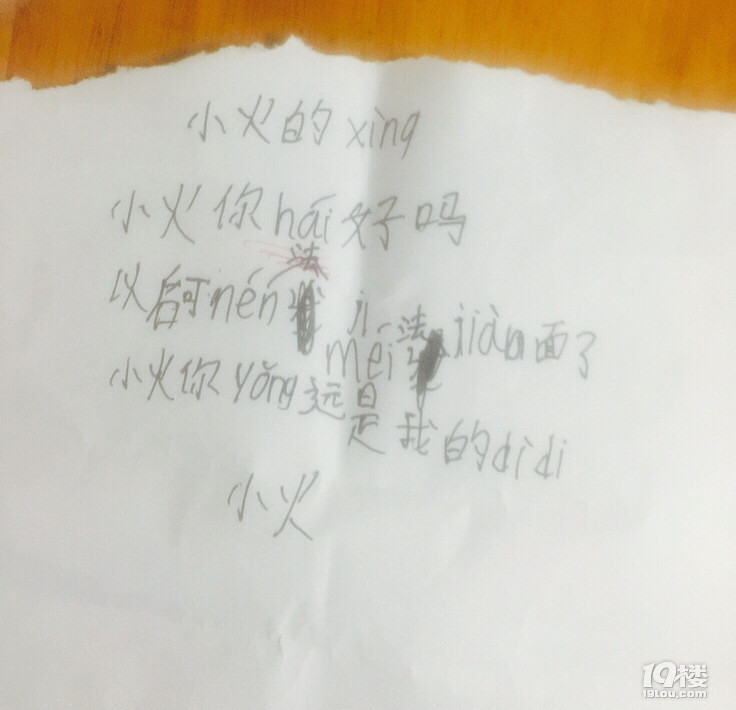 小火的 xìng
小火你hái好吗
法
以后可nén ji
méi法jiàn面了
小火你yǒng远是我的didi
小火
19楼
19lou.com